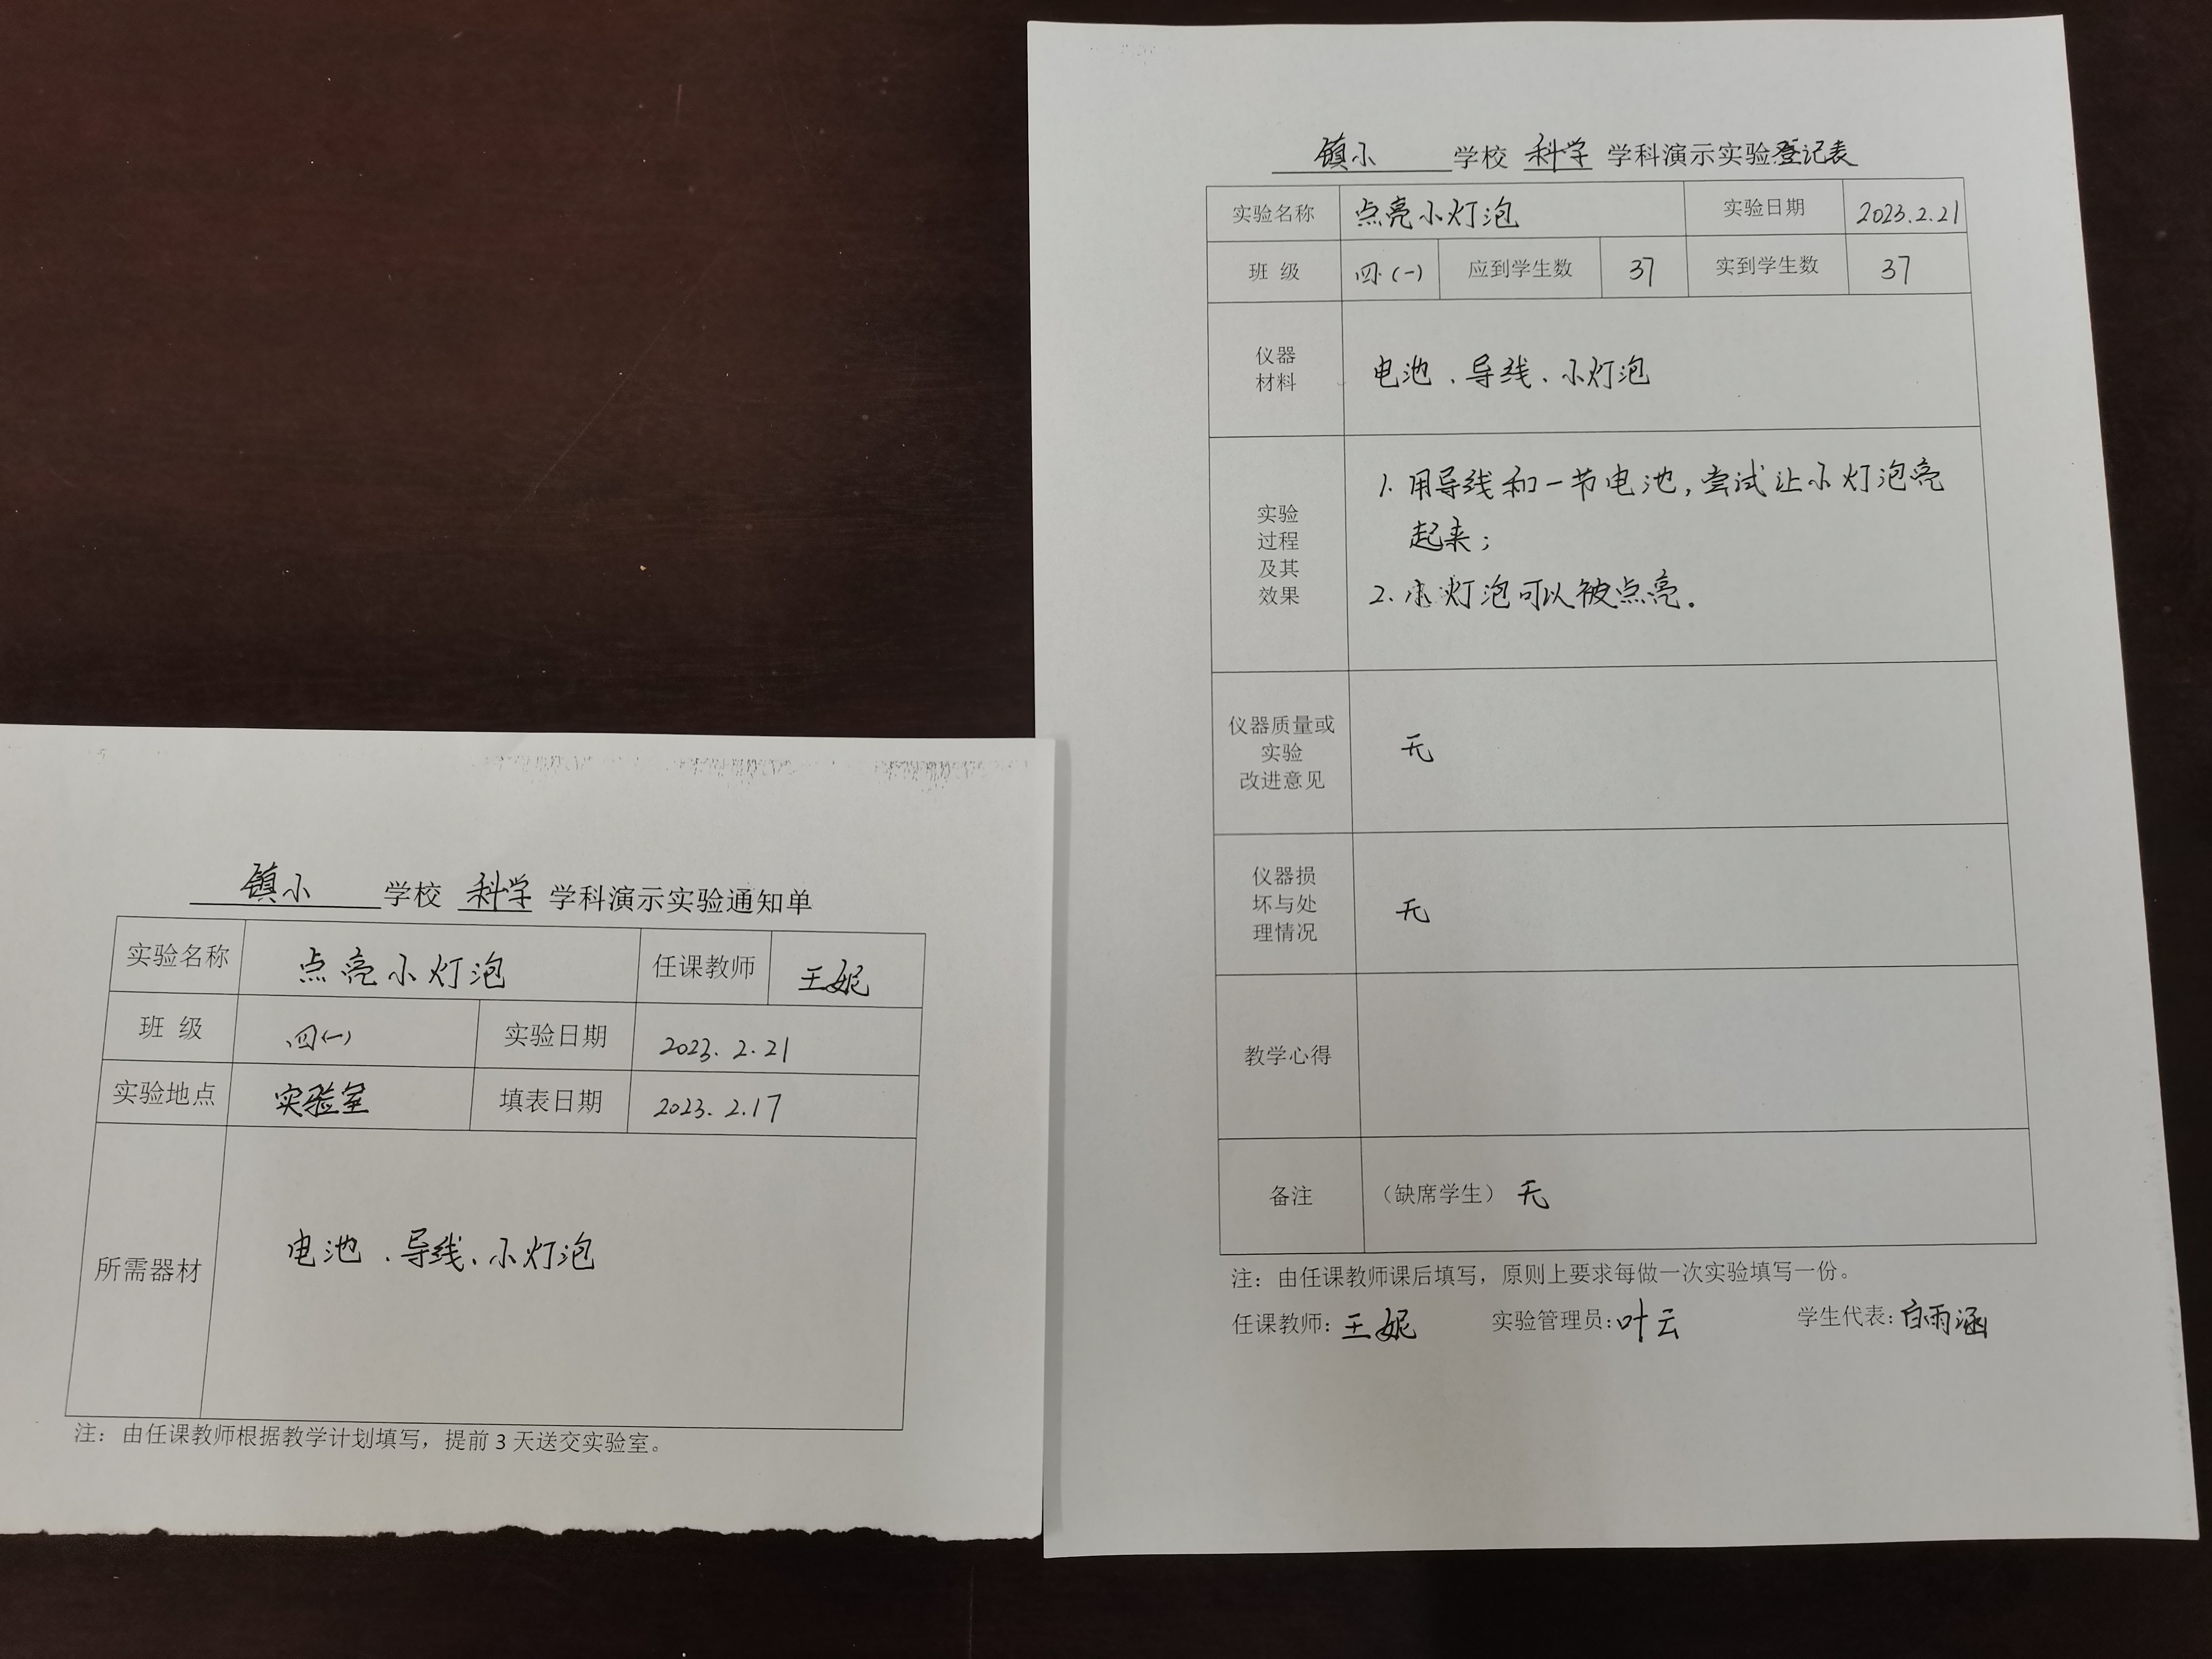 镇小 学校 科学 学科演示实验通知单
实验名称 点亮小灯泡 任课教师 王妮
班 级 四(一) 实验日期 2023.2.21
实验地点 实验室 填表日期 2023.2.17
所需器材 电池、导线、小灯泡
注：由任课教师根据教学计划填写，提前 3 天送交实验室。
镇小 学校 科学 学科演示实验登记表
实验名称 点亮小灯泡 实验日期 2023.2.21
班 级 四(一) 应到学生数 37 实到学生数 37
仪器
材料
电池、导线、小灯泡
实验
过程
及其
效果
1. 用导线和一节电池，尝试让小灯泡亮
起来；
2. 小灯泡可以被点亮。
仪器质量或
实验
改进意见
无
仪器损
坏与处
理情况
无
教学心得
备注 （缺席学生）无
注：由任课教师课后填写，原则上要求每做一次实验填写一份。
任课教师：王妮 实验管理员：叶云 学生代表：白雨涵